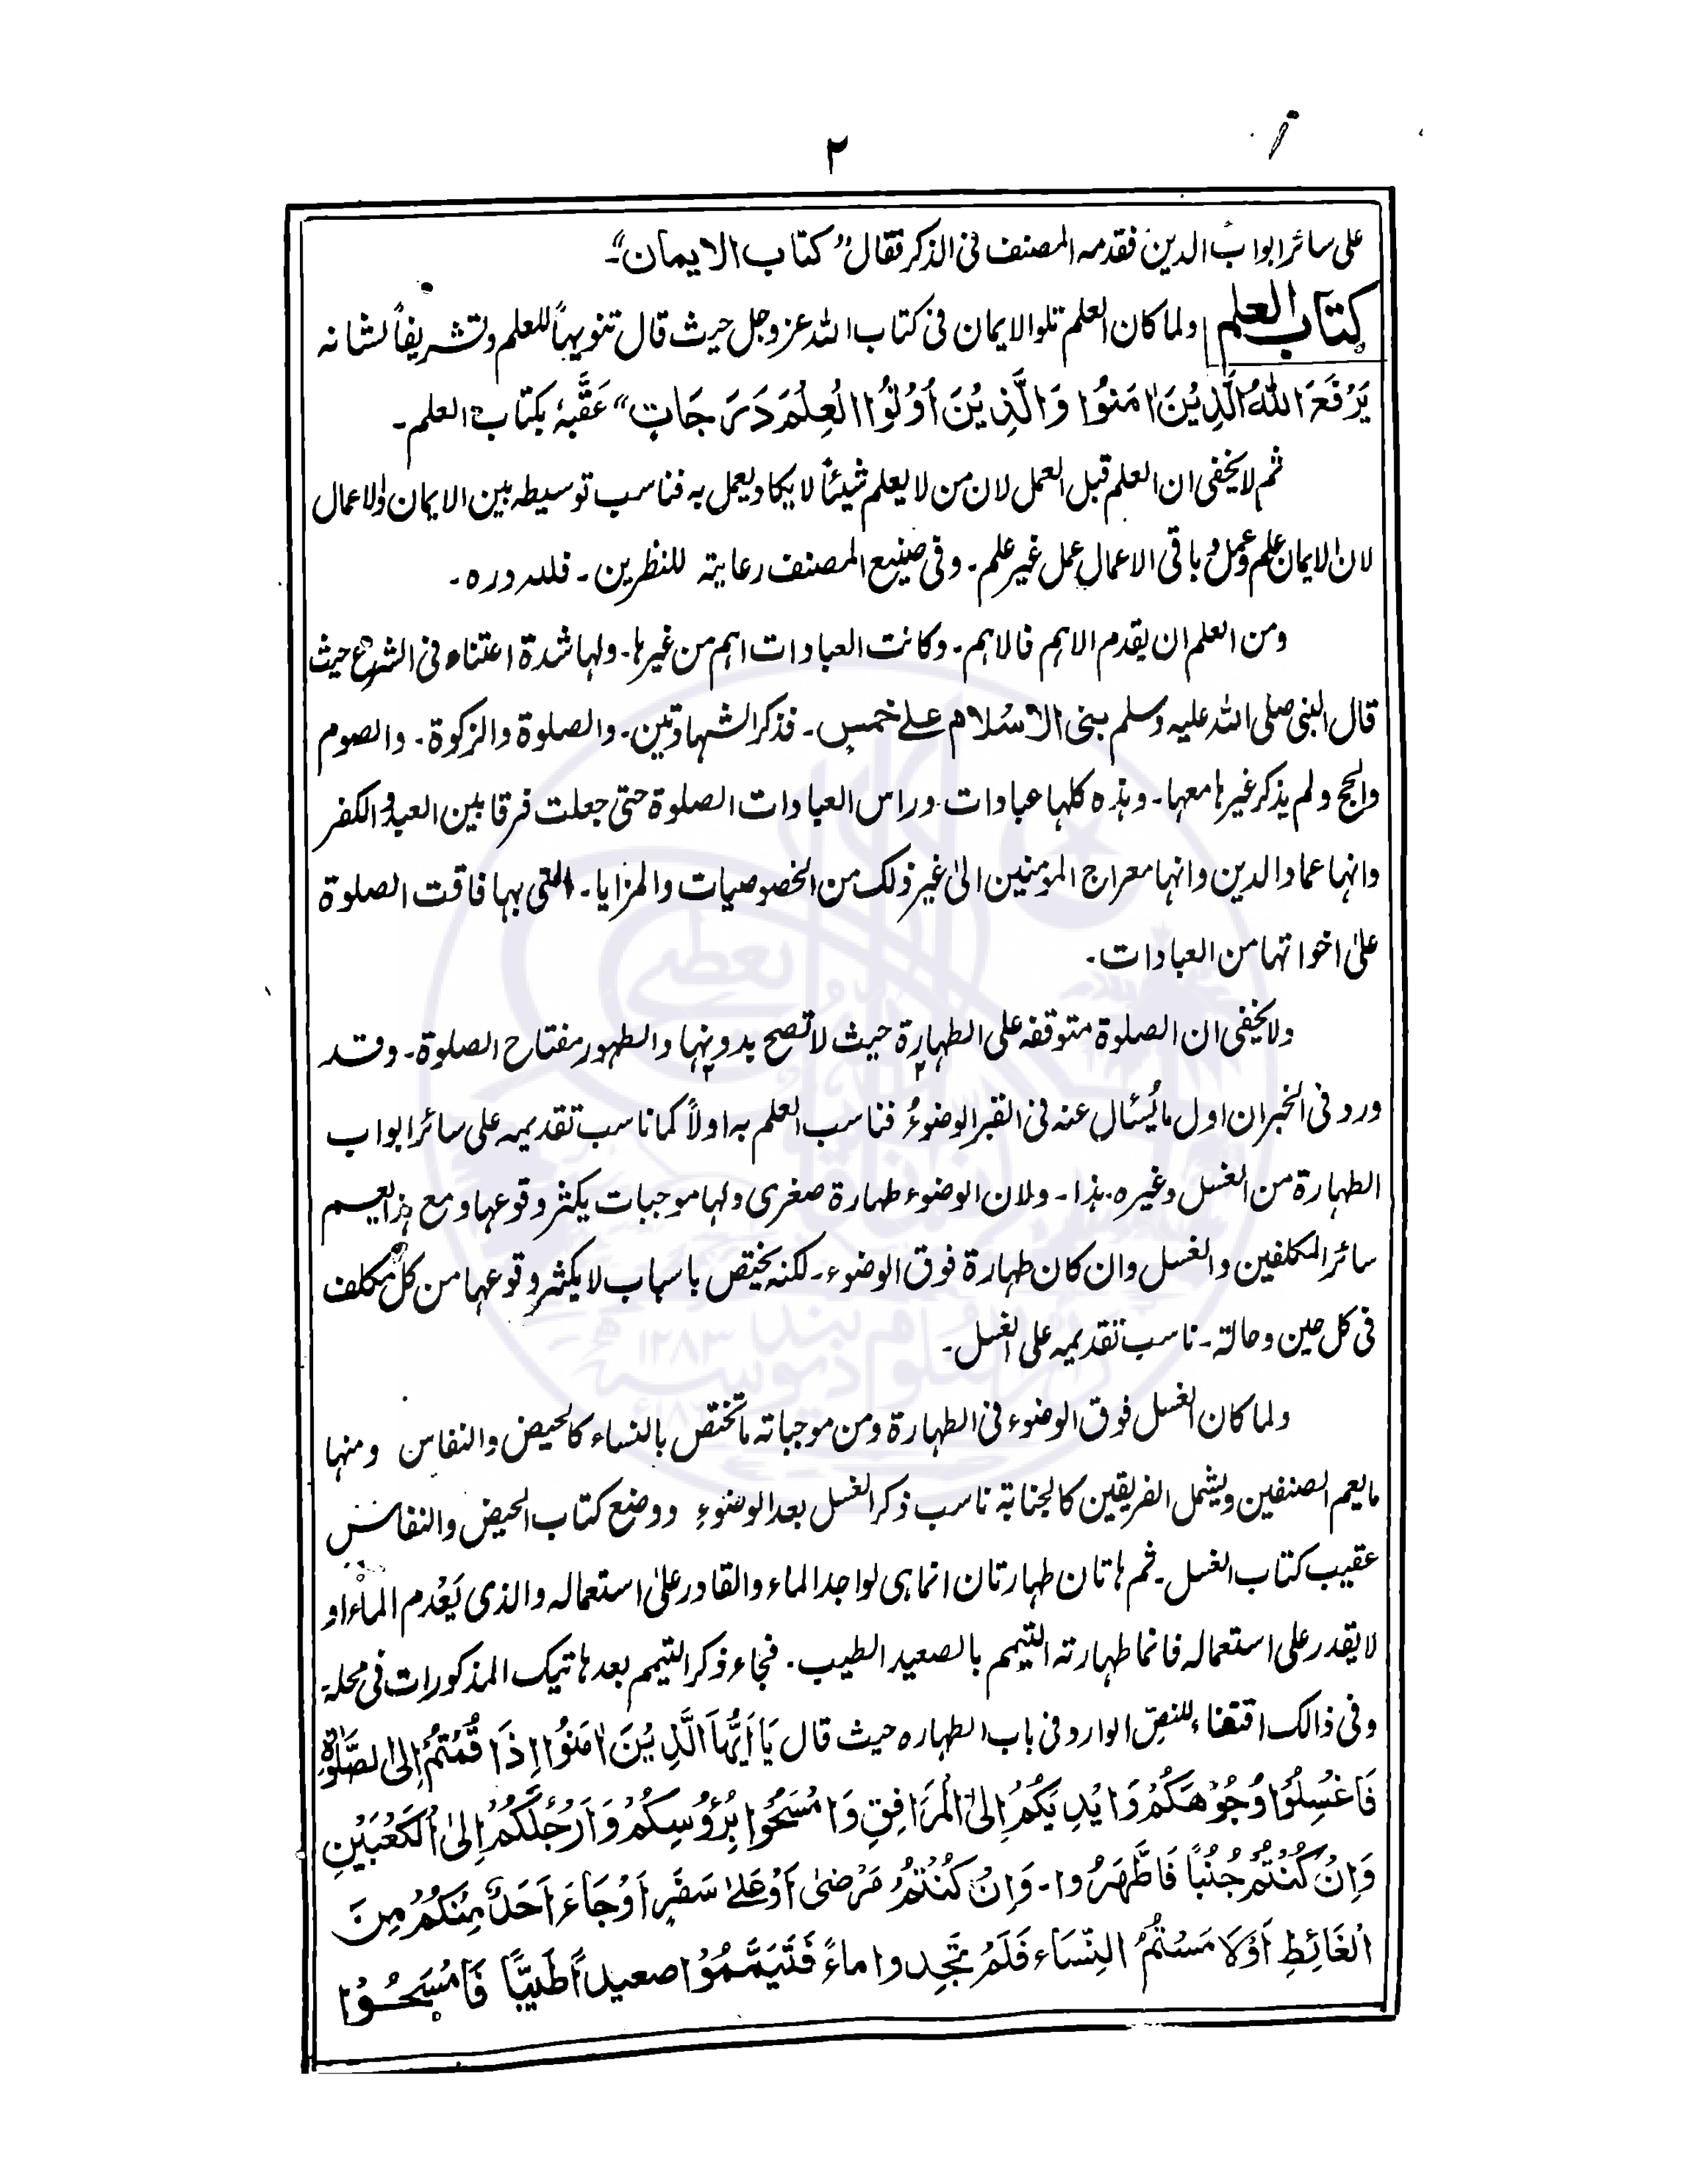 ٢
على سائر ابواب الدين فقدمه المصنف فى الذكر فقال "كتاب الايمان"۔
كتاب العلم ولما كان العلم تلو الايمان فى كتاب الله عز وجل حيث قال تنويهاً للعلم وتشريفاً لشانه
يَرْفَعَ اللهُ الَّذِيْنَ اٰمَنُوْا وَالَّذِيْنَ اُوْتُوا الْعِلْمَ دَرَجَاتٍ" عَقَّبَهٗ بكتاب العلم۔
ثم لا يخفى ان العلم قبل العمل لان من لا يعلم شيئاً لا يكاد يعمل به فناسب توسيطه بين الايمان والاعمال
لان الايمان علم وعمل وباقى الاعمال عمل غير علم۔ وفى صنيع المصنف رعاية للنظرين۔ فلله دره۔
ومن العلم ان يقدم الاهم فالاهم۔ وكانت العبادات اهم من غيرها۔ ولها شدة اعتناء فى الشرع حيث
قال النبى صلى الله عليه وسلم بنى الاسلام على خمس۔ فذكر الشهادتين۔ والصلوة والزكوة۔ والصوم
والحج ولم يذكر غيرها معها۔ وهذه كلها عبادات وراس العبادات الصلوة حتى جعلت فرقا بين العبد والكفر
وانها عماد الدين وانها معراج المومنين الىٰ غير ذلك من الخصوصيات والمزايا۔ التى بها فاقت الصلوة
علىٰ اخواتها من العبادات۔
ولا يخفى ان الصلوة متوقفه على الطهارة حيث لا تصح بدونها والطهور مفتاح الصلوة۔ وقد
ورد فى الخبر ان اول ما يُسْئال عنه فى القبر الوضوءُ فناسب العلم به اولاً كما ناسب تقديمه على سائر ابواب
الطهارة من الغسل وغيره۔ هذا۔ ولان الوضوء طهارة صغرى ولها موجبات يكثر وقوعها ومع هذا يعم
سائر المكلفين والغسل وان كان طهارة فوق الوضوء۔ لكنه يختص باسباب لا يكثر وقوعها من كل مكلف
فى كل حين وحالة۔ ناسب تقديمه على الغسل۔
ولما كان الغسل فوق الوضوء فى الطهارة ومن موجباته ما تختص بالنساء كالحيض والنفاس ومنها
ما يعم الصنفين ويشمل الفريقين كالجنابة ناسب ذكر الغسل بعد الوضوءِ ووضع كتاب الحيض والنفاس
عقيب كتاب الغسل۔ ثم هاتان طهارتان انما هى لواجد الماء والقادر علىٰ استعماله والذى يَعْدم الماء او
لا يقدر على استعماله فانما طهارته التيمم بالصعيد الطيب۔ فجاء ذكر التيمم بعد هاتيك المذكورات فى محله
وفى ذالك اقتفاء للنصّ الوارد فى باب الطهاره حيث قال يَا اَيُّهَا الَّذِيْنَ اٰمَنُوْا اِذَا قُمْتُمْ اِلَى الصَّلٰوةِ
فَاغْسِلُوْا وُجُوْهَكُمْ وَاَيْدِيَكُمْ اِلَى الْمَرَافِقِ وَامْسَحُوْا بِرُؤُسِكُمْ وَاَرْجُلَكُمْ اِلَى الْكَعْبَيْنِ
وَاِنْ كُنْتُمْ جُنُبًا فَاطَّهَرُوا۔ وَاِنْ كُنْتُمْ مَرْضىٰ اَوْ عَلىٰ سَفَرٍ اَوْ جَاءَ اَحَدٌ مِنْكُمْ مِنَ
الْغَائِطِ اَوْ لَامَسْتُمُ النِّسَاء فَلَمْ تَجِدوا ماءً فَتَيَمَّمُوْا صعيداً طَيِّبًا فَامْسَحُوْا